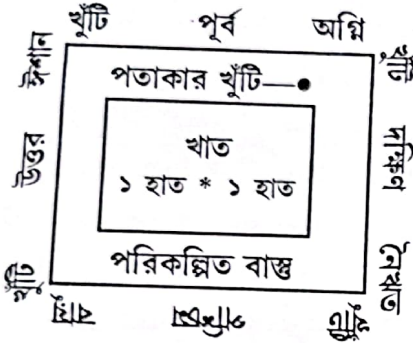 খুঁটি পূর্ব অগ্নি
ঈশান
খুঁটি
পতাকার খুঁটি
উত্তর
খাত
১ হাত * ১ হাত
দক্ষিণ
পরিকল্পিত বাস্তু
নৈঋত
খুঁটি
বায়ু
পশ্চিম
খুঁটি